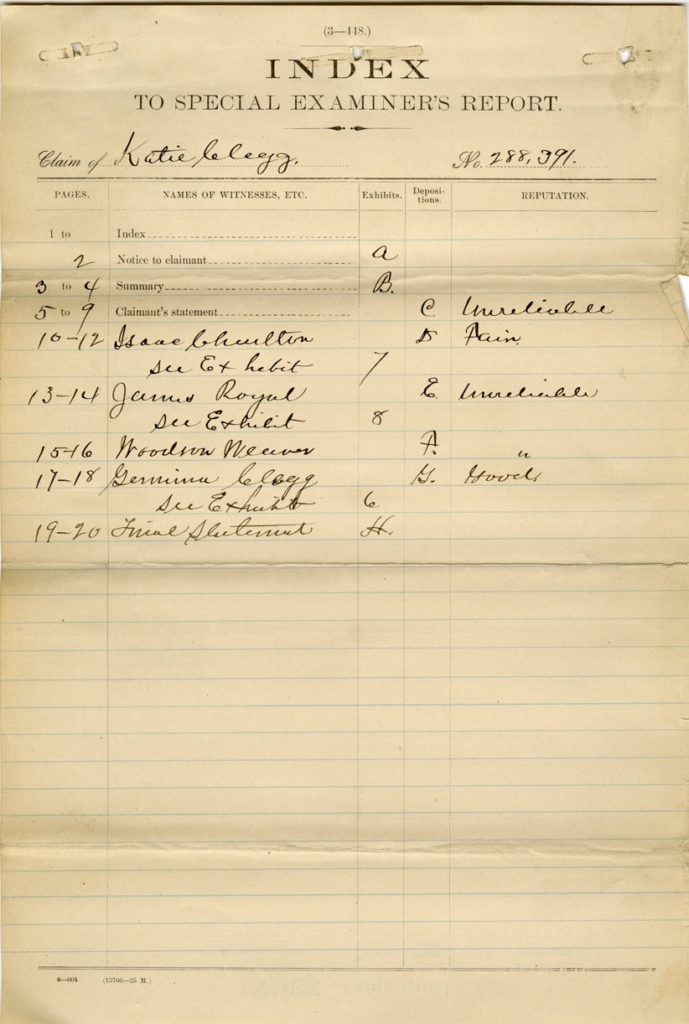 (3—448.)
INDEX
TO SPECIAL EXAMINER'S REPORT.
Claim of Katie Clegg, No. 288,391.
PAGES. NAMES OF WITNESSES, ETC. Exhibits. Deposi-tions. REPUTATION.
1 to Index
2 Notice to claimant A
3 to 4 Summary B.
5 to 9 Claimant's statement C Unreliable
10-12 Isaac D Fair.
see Exhibit 7
13-14 James Royal E Unreliable
see Exhibit 8
15-16 Woodson Weaver F. "
17-18 Clegg G. Good
see Exhibit 6
19-20 Final Statement H.
6—004 (15766—25 M.)